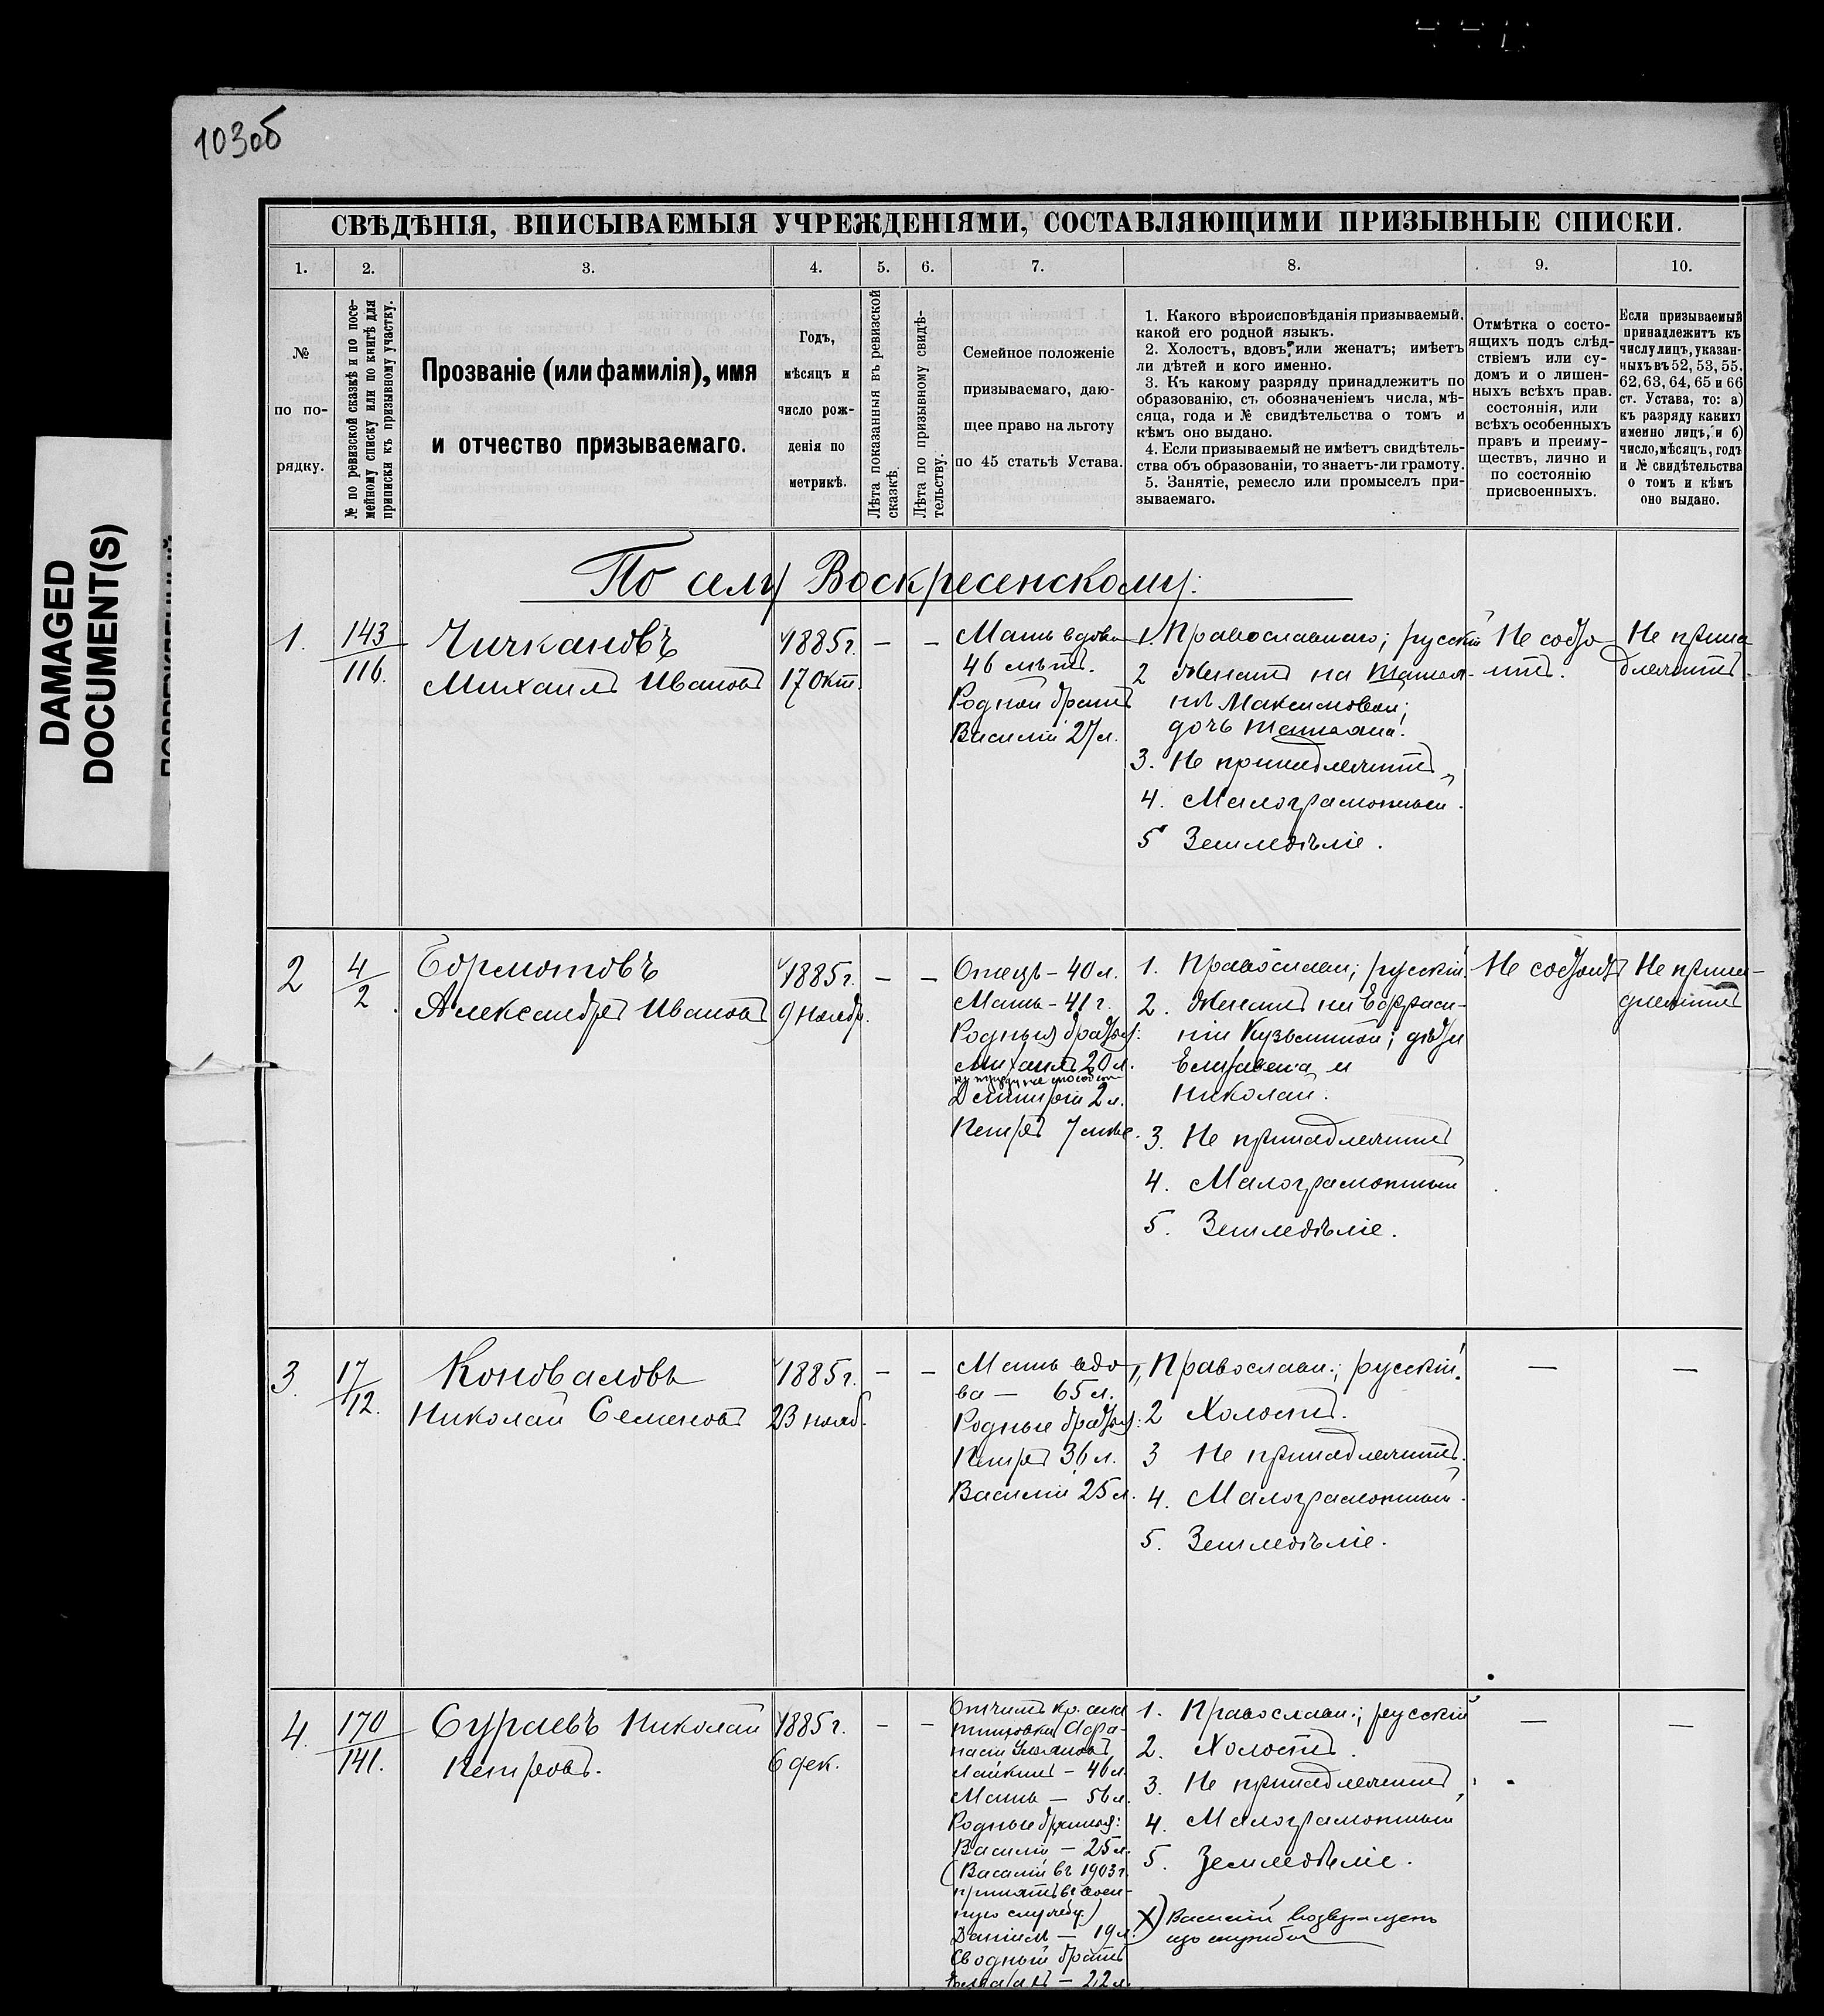 103об
DAMAGED
DOCUMENT(S)
СВѢДѢНІЯ, ВПИСЫВАЕМЫЯ УЧРЕЖДЕНІЯМИ, СОСТАВЛЯЮЩИМИ ПРИЗЫВНЫЕ СПИСКИ.
1. 2. 3. 4. 5. 6. 7. 8. 9. 10.
№
по по-
рядку.
№ по ревизской сказкѣ и по посе-
мейному списку или по книгѣ для
приписки къ призывному участку.
Прозваніе (или фамилія), имя
и отчество призываемаго.
Годъ,
мѣсяцъ и
число рож-
денія по
метрикѣ.
Лѣта показанныя въ ревизской
сказкѣ.
Лѣта по призывному свидѣ-
тельству.
Семейное положеніе
призываемаго, даю-
щее право на льготу
по 45 статьѣ Устава.
1. Какого вѣроисповѣданія призываемый,
какой его родной языкъ.
2. Холостъ, вдовъ, или женатъ; имѣетъ
ли дѣтей и кого именно.
3. Къ какому разряду принадлежитъ по
образованію, съ обозначеніемъ числа, мѣ-
сяца, года и № свидѣтельства о томъ и
кѣмъ оно выдано.
4. Если призываемый не имѣетъ свидѣтель-
ства объ образованіи, то знаетъ-ли грамоту.
5. Занятіе, ремесло или промыселъ при-
зываемаго.
Отмѣтка о состо-
ящихъ подъ слѣд-
ствіемъ или су-
домъ и о лишен-
ныхъ всѣхъ прав.
состоянія, или
всѣхъ особенныхъ
правъ и преиму-
ществъ, лично и
по состоянію
присвоенныхъ.
Если призываемый
принадлежитъ къ
числу лицъ, указан-
ныхъ въ 52, 53, 55.
62, 63, 64, 65 и 66
ст. Устава, то: а)
къ разряду какихъ
именно лицъ, и б)
число, мѣсяцъ, годъ
и № свидѣтельства
о томъ и кѣмъ
оно выдано.
По селу Воскресенскому:
1.
143
116.
Чичкановъ
Михаилъ Ивановъ
1885г.
17 Окт.
—
—
Мать вдова
46 лѣтъ.
Родной братъ
Василій 27 л.
1. Православнаго; русскій
2 Женатъ на Татья-
нѣ Максимовой;
дочь Татьяна.
3. Не принадлежитъ
4. Малограмотный.
5 Земледѣліе.
Не состо
итъ.
Не прина
длежитъ.
2
4
2.
Бормотовъ
Александръ Ивановъ
1885г.
9 Ноябр.
—
—
Отецъ - 40 л.
Мать - 41 г.
Родныя братья:
Михаилъ 20 л.
Дмитрій 2 л.
Петръ 7 мѣс.
1. Православн; русскій
2. Женатъ на Евфраси-
ніи Кузьминой; дѣти
Елизавета и
Николай.
3. Не принадлежитъ
4. Малограмотный
5. Земледѣліе.
Не состоитъ
Не прина-
длежитъ
3.
17
12.
Коноваловъ
Николай Семеновъ
1885г.
23 нояб.
—
—
Мать вдо
ва — 65 л.
Родные братья:
Петръ 36 л.
Василій 25 л.
1, Православн.; русскій.
2 Холостъ.
3 Не принадлежитъ.
4. Малограмотный.
5. Земледѣліе.
—
—
4.
170
141.
Сураевъ Николай
Петровъ.
1885г.
6 дек.
—
—
Отчимъ кр. села
Афа-
насій
Лайкинъ - 46 л.
Мать — 56 л.
Родные братья:
Василій — 25 л.
(Василій въ 1903 г.
принятъ въ воен-
ную службу.)
Даніилъ — 19 л.
Сводный братъ
— 22 л.
1. Православн.; русскій
2. Холостъ.
3. Не принадлежитъ
4. Малограмотный
5. Земледѣліе.
X) Василій возвращенъ
изъ службы
—
—